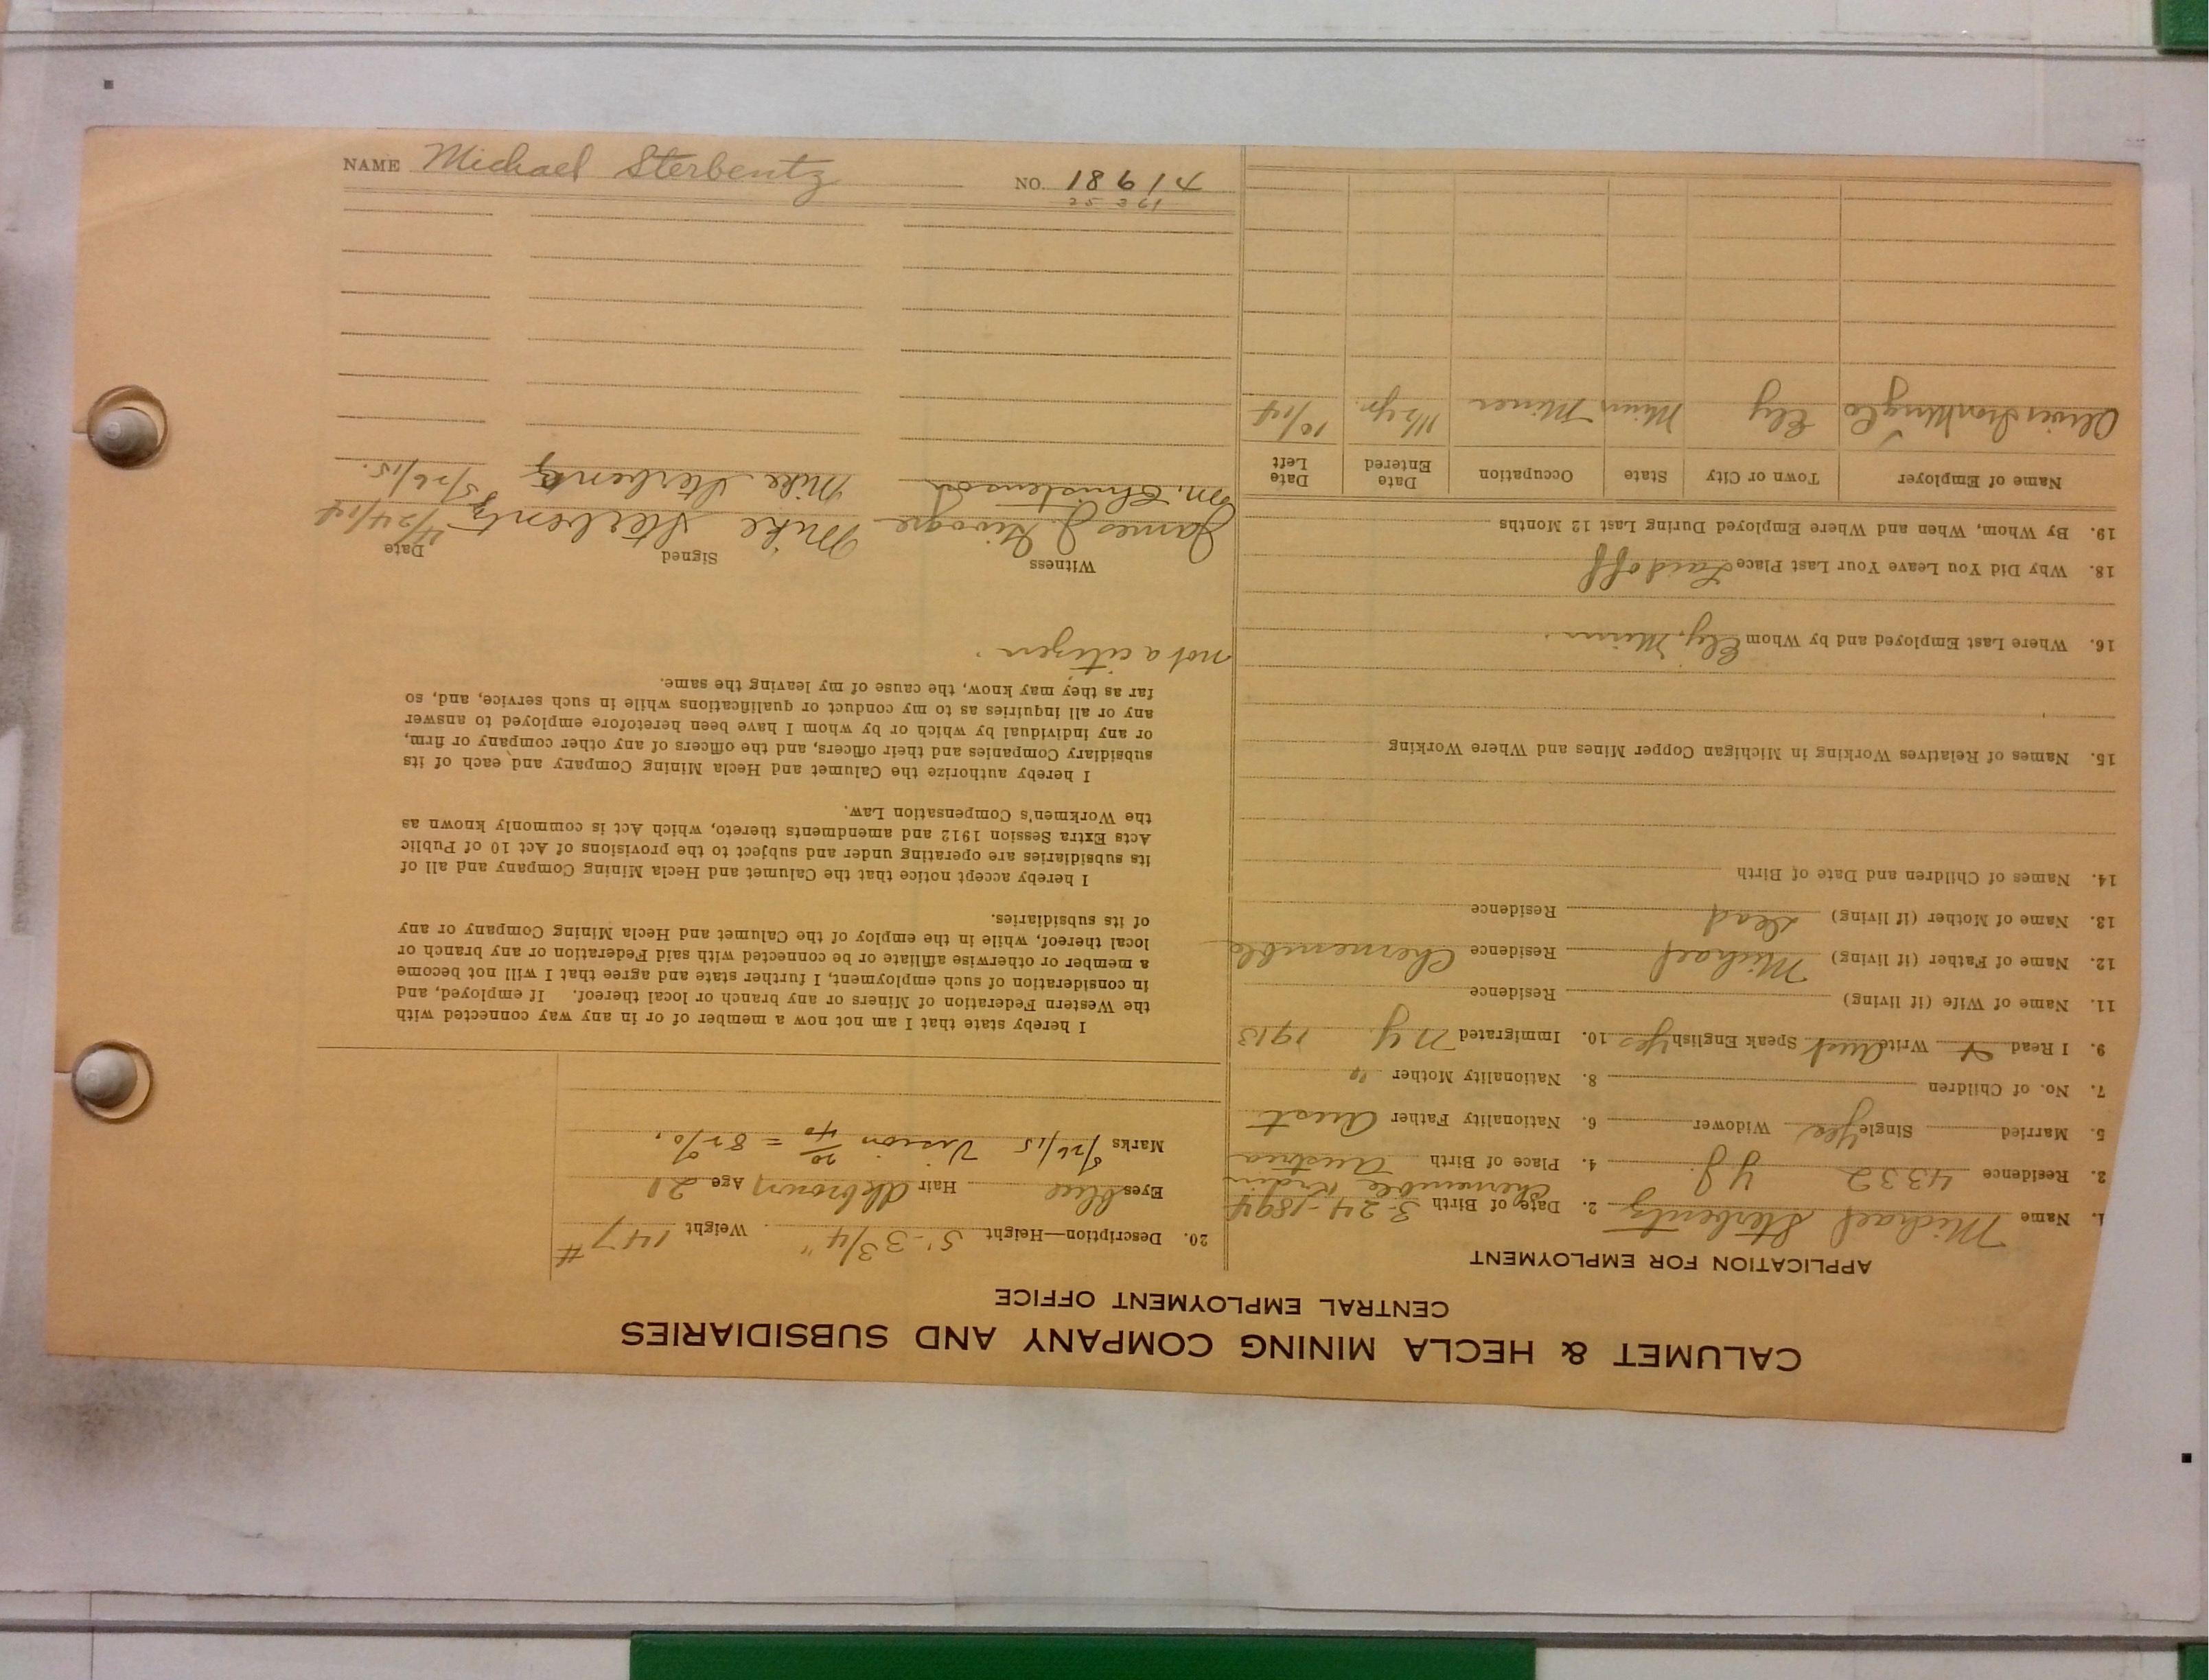 CALUMET & HECLA MINING COMPANY AND SUBSIDIARIES
CENTRAL EMPLOYMENT OFFICE
APPLICATION FOR EMPLOYMENT
1. Name Michael Sterbentz 2. Date of Birth 3-24-1894
Chernemble Krain
3. Residence 4332 4. Place of Birth Austria
5. Married Single Yes Widower 6. Nationality Father Aust
7. No. of Children 8. Nationality Mother "
9. I Read & Write Aust Speak English Yes 10. Immigrated NY 1913
11. Name of Wife (if living) Residence
12. Name of Father (if living) Michael Residence Chernemble
13. Name of Mother (if living) Dead Residence
14. Names of Children and Date of Birth
15. Names of Relatives Working in Michigan Copper Mines and Where Working
16. Where Last Employed and by Whom Ely, Minn.
18. Why Did You Leave Your Last Place Laid off
19. By Whom, When and Where Employed During Last 12 Months
Name of Employer Town or City State Occupation Date Entered Date Left
Oliver Iron Mng Co Ely Minn Miner 1 1/2 yr. 10/14
20. Description—Height 5'-3 3/4" Weight 147#
Eyes blue Hair dk brown Age 20
Marks 5/26/15 Vision 20/40 = 85%.
I hereby state that I am not now a member of or in any way connected with
the Western Federation of Miners or any branch or local thereof. If employed, and
in consideration of such employment, I further state and agree that I will not become
a member or otherwise affiliate or be connected with said Federation or any branch or
local thereof, while in the employ of the Calumet and Hecla Mining Company or any
of its subsidiaries.
I hereby accept notice that the Calumet and Hecla Mining Company and all of
its subsidiaries are operating under and subject to the provisions of Act 10 of Public
Acts Extra Session 1912 and amendments thereto, which Act is commonly known as
the Workmen's Compensation Law.
I hereby authorize the Calumet and Hecla Mining Company and each of its
subsidiary Companies and their officers, and the officers of any other company or firm,
or any individual by which or by whom I have been heretofore employed to answer
any or all inquiries as to my conduct or qualifications while in such service, and, so
far as they may know, the cause of my leaving the same.
not a citizen.
Witness Signed Date
James J. Mike Sterbentz /24/14
M. Christenson Mike Sterbentz 5/26/15.
NAME Michael Sterbentz NO. 18614